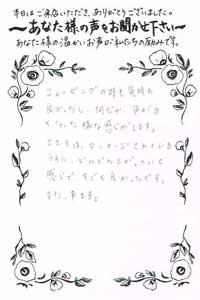 本日はご来店いただき、ありがとうございました。
～あなた様の声をお聞かせ下さい～
あなた様の温かいお声が私たちの励みです。
コルギもピーリングの時も気持ち
良かったし、何だか、声が出やす
くなった様な感じがします。
エステは、マッサージされている
うちに、どんどん上がっていく
感じで すごく良かったです。
また、来ます。